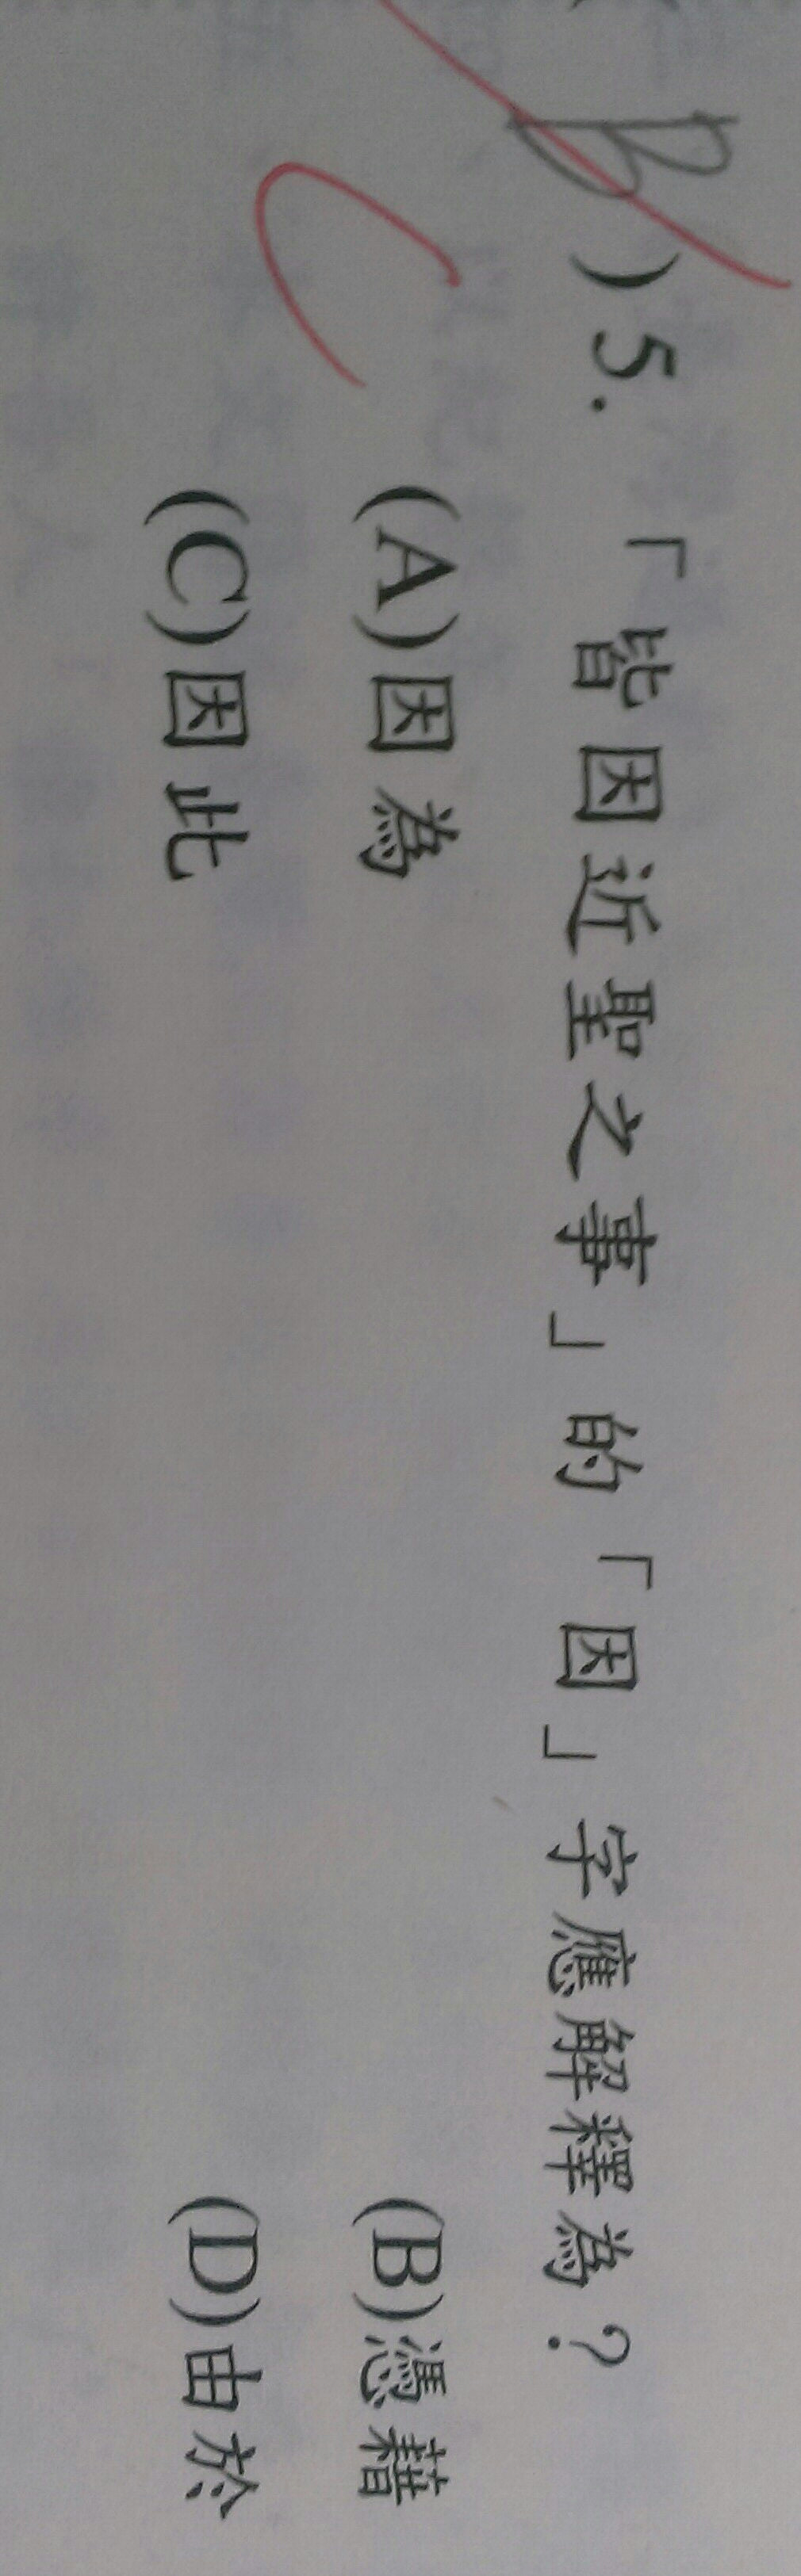 B)5.「皆因近聖之事」的「因」字應解釋為?
C
(A)因為 (B)憑藉
(C)因此 (D)由於